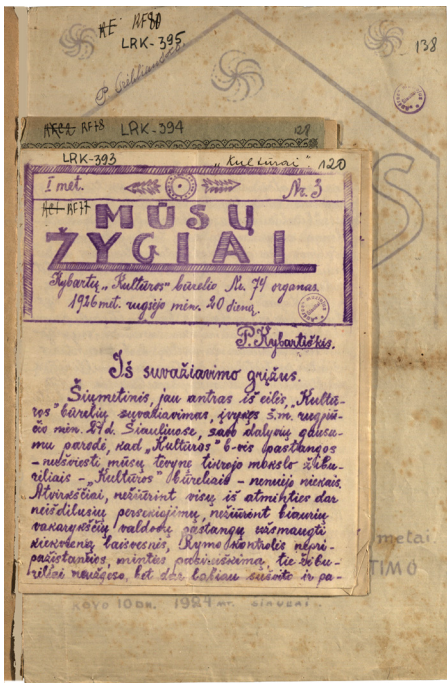 RF80
LRK-395
138
RF78 LRK-394
128
LRK-393
"Kultūrai" 120
I met.
Nr. 3
RF77
MŪSŲ
ŽYGIAI
Kybartų „Kultūros" būrelio Nr. 74 organas.
1926 met. rugsėjo mėn. 20 dieną.
P. Kybartiškis.
Iš suvažiavimo grįžus.
Šiumetinis, jau antras iš eilės, „Kultū-
ros" būrelių suvažiavimas, įvykęs š.m. rugpjū-
čio mėn. 27 d. Šiauliuose, savo dalyvių gausu-
mu parodė, kad „Kultūros" b-vės pastangos
- nušviesti mūsų tėvynę tikrojo mokslo žibu-
rėliais - „Kultūros" būreliais - nenuėjo niekais.
Atvirkščiai, nežiūrint visų iš atminties dar
neišdilusių persekiojimų, nežiūrint biaurių
vakarykščių valdovų pastangų užsmaugti
kiekvieną laisvesnės, Rymo kontrolės nepri-
pažįstančios, minties pasireiškimą, tie žibu-
rėliai neužgeso, bet dar labiau sušvito ir pa-
metai.
TIMO
10 DN. 1924 MT.